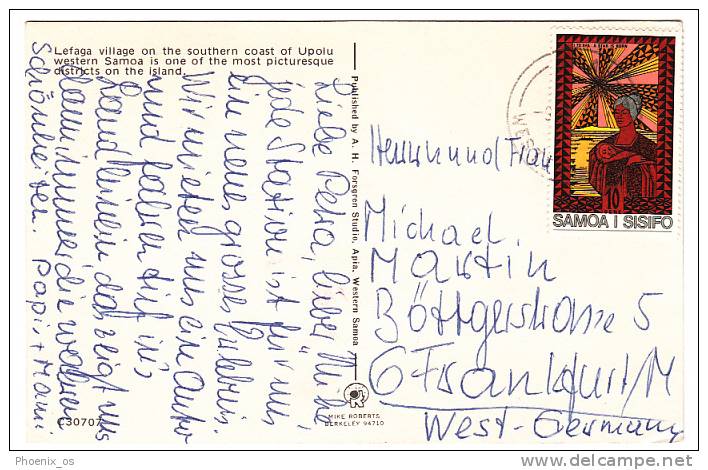 Lefaga village on the southern coast of Upolu
western Samoa is one of the most picturesque
districts on the island.
Liebe Petra, lieber Michi
jede Station ist für uns
ein neues grosses Erlebnis.
Wir mieten uns ein Auto
und fahren tief ins
Land hinein, da zeigt uns
dann immer die wahren
Schönheiten. Papi + Mami
C30707
Published by A. H. Forsgren Studio, Apia, Western Samoa
MIKE ROBERTS
BERKELEY 94710
WES
10
SAMOA I SISIFO
Herrn und Frau
Michael
Martin
Böttgerstrasse 5
6 Frankfurt/M
West-Germany
Phoenix_os
www.delcampe.net